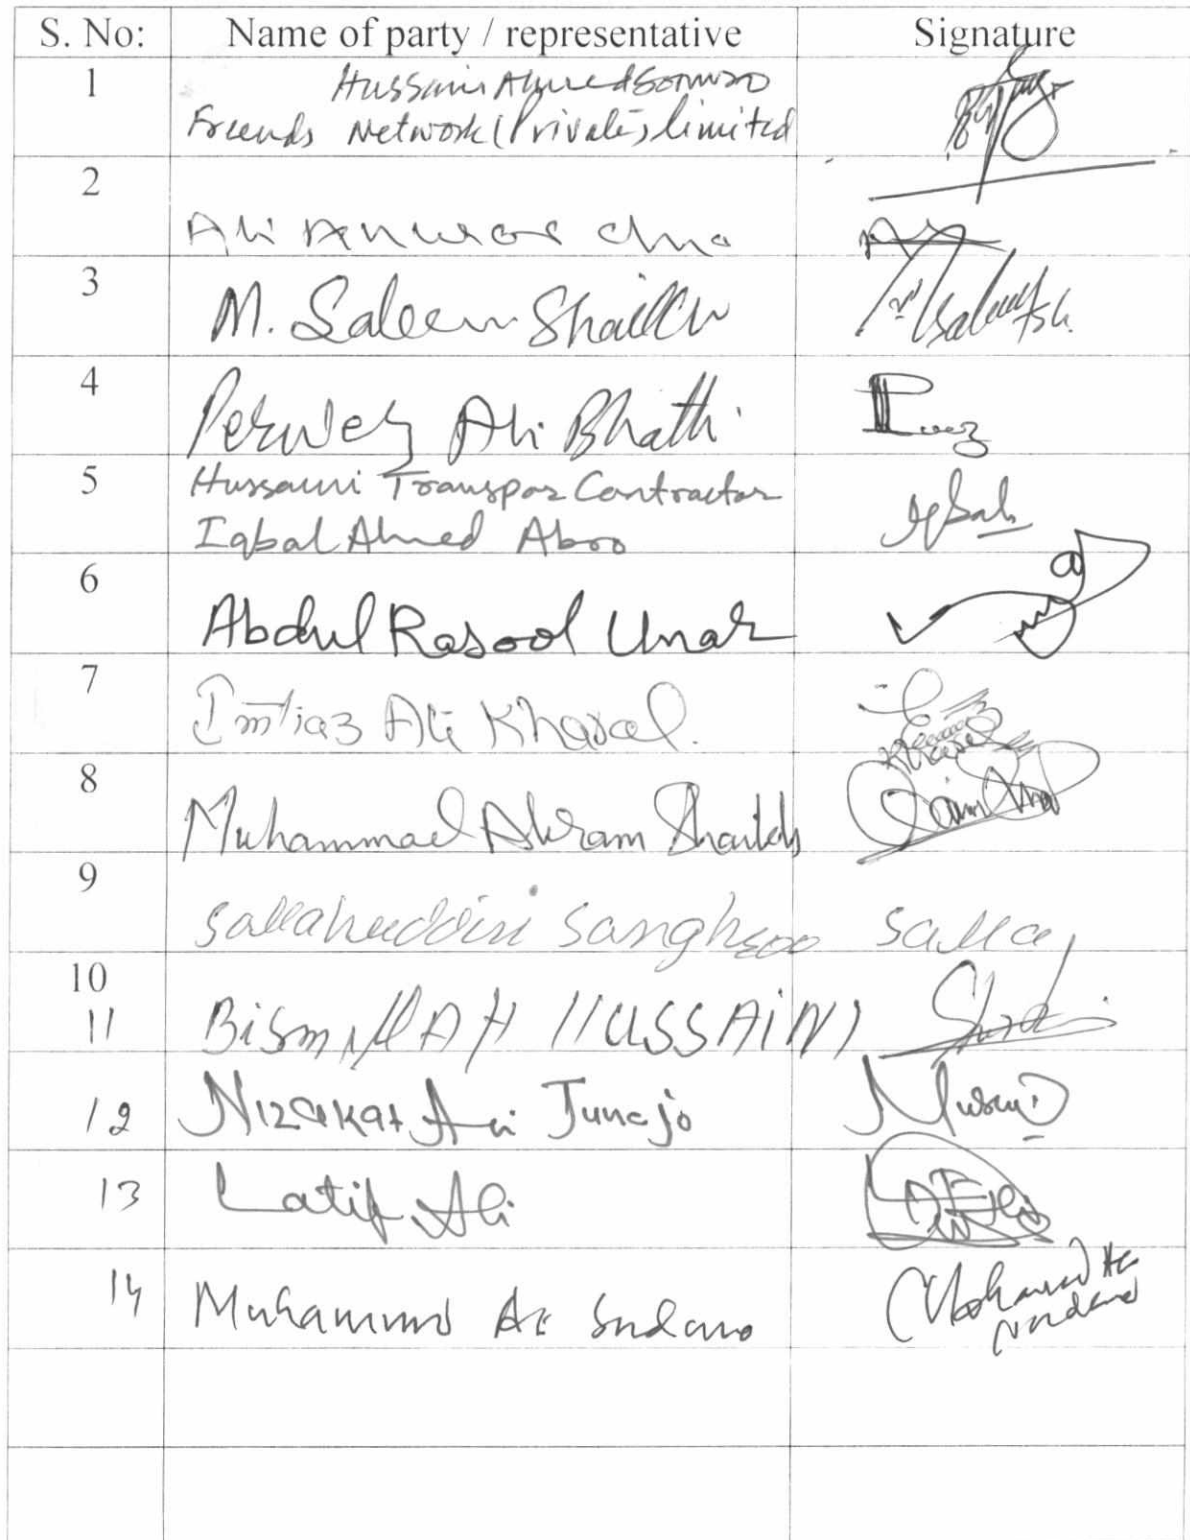 S. No: Name of party / representative Signature
1 Hussain Ahmed Soomro
Friends Network (Private) limited
2 Ali Anwar
3 M. Saleem Shaikh
4 Perwez Ali Bhatti
5 Hussaini Transpor Contractor
Iqbal Ahmed Abro Iqbal
6 Abdul Rasool Unar
7 Imtiaz Ali Kharal.
8 Muhammad Akram Shaikh
9 Sallahuddin Sanghroo Salla
10
11 BismillAH HUSSAINI
12 Nizakat Ali Junejo
13 Latif Ali
14 Muhammad